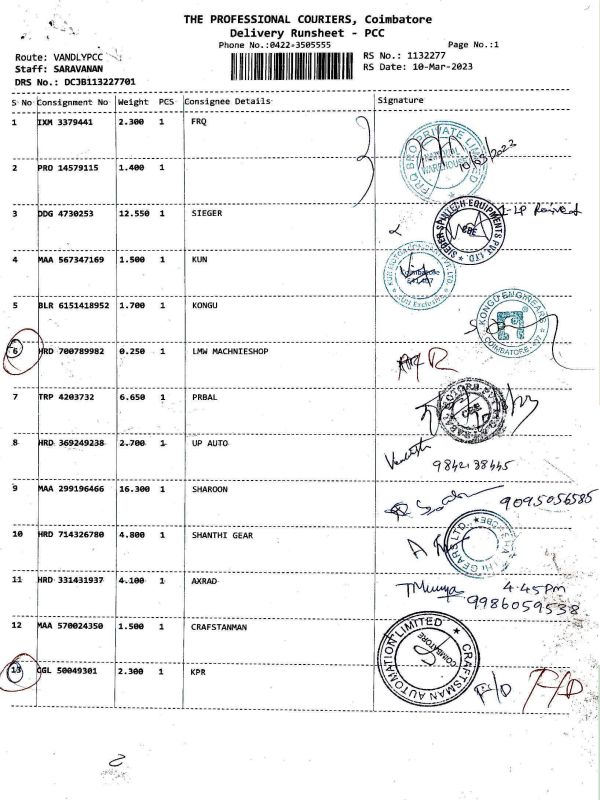 THE PROFESSIONAL COURIERS, Coimbatore
Delivery Runsheet - PCC
Phone No.:0422-3505555
Page No.:1
Route: VANDLYPCC
RS No.: 1132277
Staff: SARAVANAN
RS Date: 10-Mar-2023
DRS No.: DCJB113227701
S No Consignment No Weight PCS Consignee Details Signature
1 IXM 3379441 2.300 1 FRQ
10/03/2023
2 PRO 14579115 1.400 1
3 DDG 4730253 12.550 1 SIEGER
4 MAA 567347169 1.500 1 KUN
5 BLR 6151418952 1.700 1 KONGU
KONGU ENGINEERS
COIMBATORE
6 HRD 700789982 0.250 1 LMW MACHNIESHOP
7 TRP 4203732 6.650 1 PRBAL
8 HRD 369249238 2.700 1 UP AUTO
9 MAA 299196466 16.300 1 SHAROON
9095056585
10 HRD 714326780 4.800 1 SHANTHI GEAR
11 HRD 331431937 4.100 1 AXRAD
4.45pm
9986059538
12 MAA 570024350 1.500 1 CRAFSTANMAN
CRAFTSMAN AUTOMATION LIMITED
COIMBATORE
13 QGL 50049301 2.300 1 KPR
F/D F/D
2